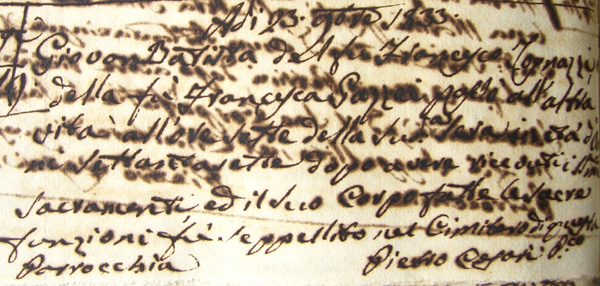 Adi 23. 9bre 1833.
Giovan Batista del fù Francesco Tognazzi, e
della fù Francesca Pazzi passò all'altra
vita all'ore sette della sera in età d'
ni settantasette dopo avere ricevuti i SSmi
Sacramenti ed il suo Corpo fatte le sacre
funzioni fù seppellito nel Cimitero di questa
Parrocchia Pietro Cesari P.co